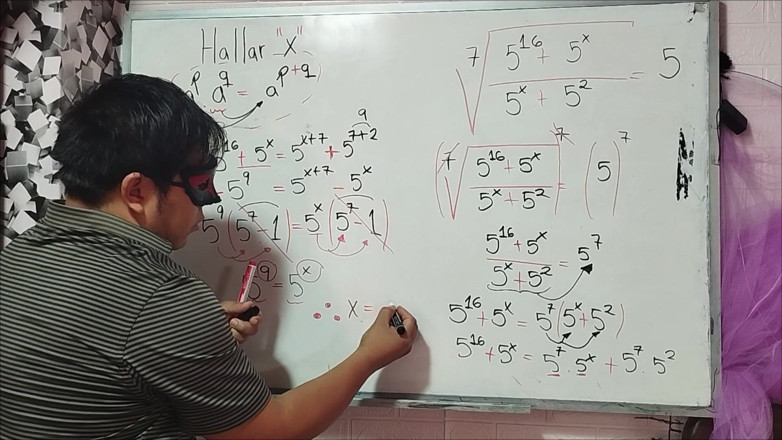 Hallar "X"
a^q = a^(p+q)
⁷√((5^16 + 5^x)/(5^x + 5^2)) = 5
(⁷√((5^16 + 5^x)/(5^x + 5^2)))^7 = (5)^7
(5^16 + 5^x)/(5^x + 5^2) = 5^7
5^16 + 5^x = 5^7(5^x + 5^2)
5^16 + 5^x = 5^7 . 5^x + 5^7 . 5^2
9
+ 5^x = 5^(x+7) + 5^(7+2)
5^9 = 5^(x+7) - 5^x
5^9(5^7 - 1) = 5^x(5^7 - 1)
5^9 = 5^x
∴ x =